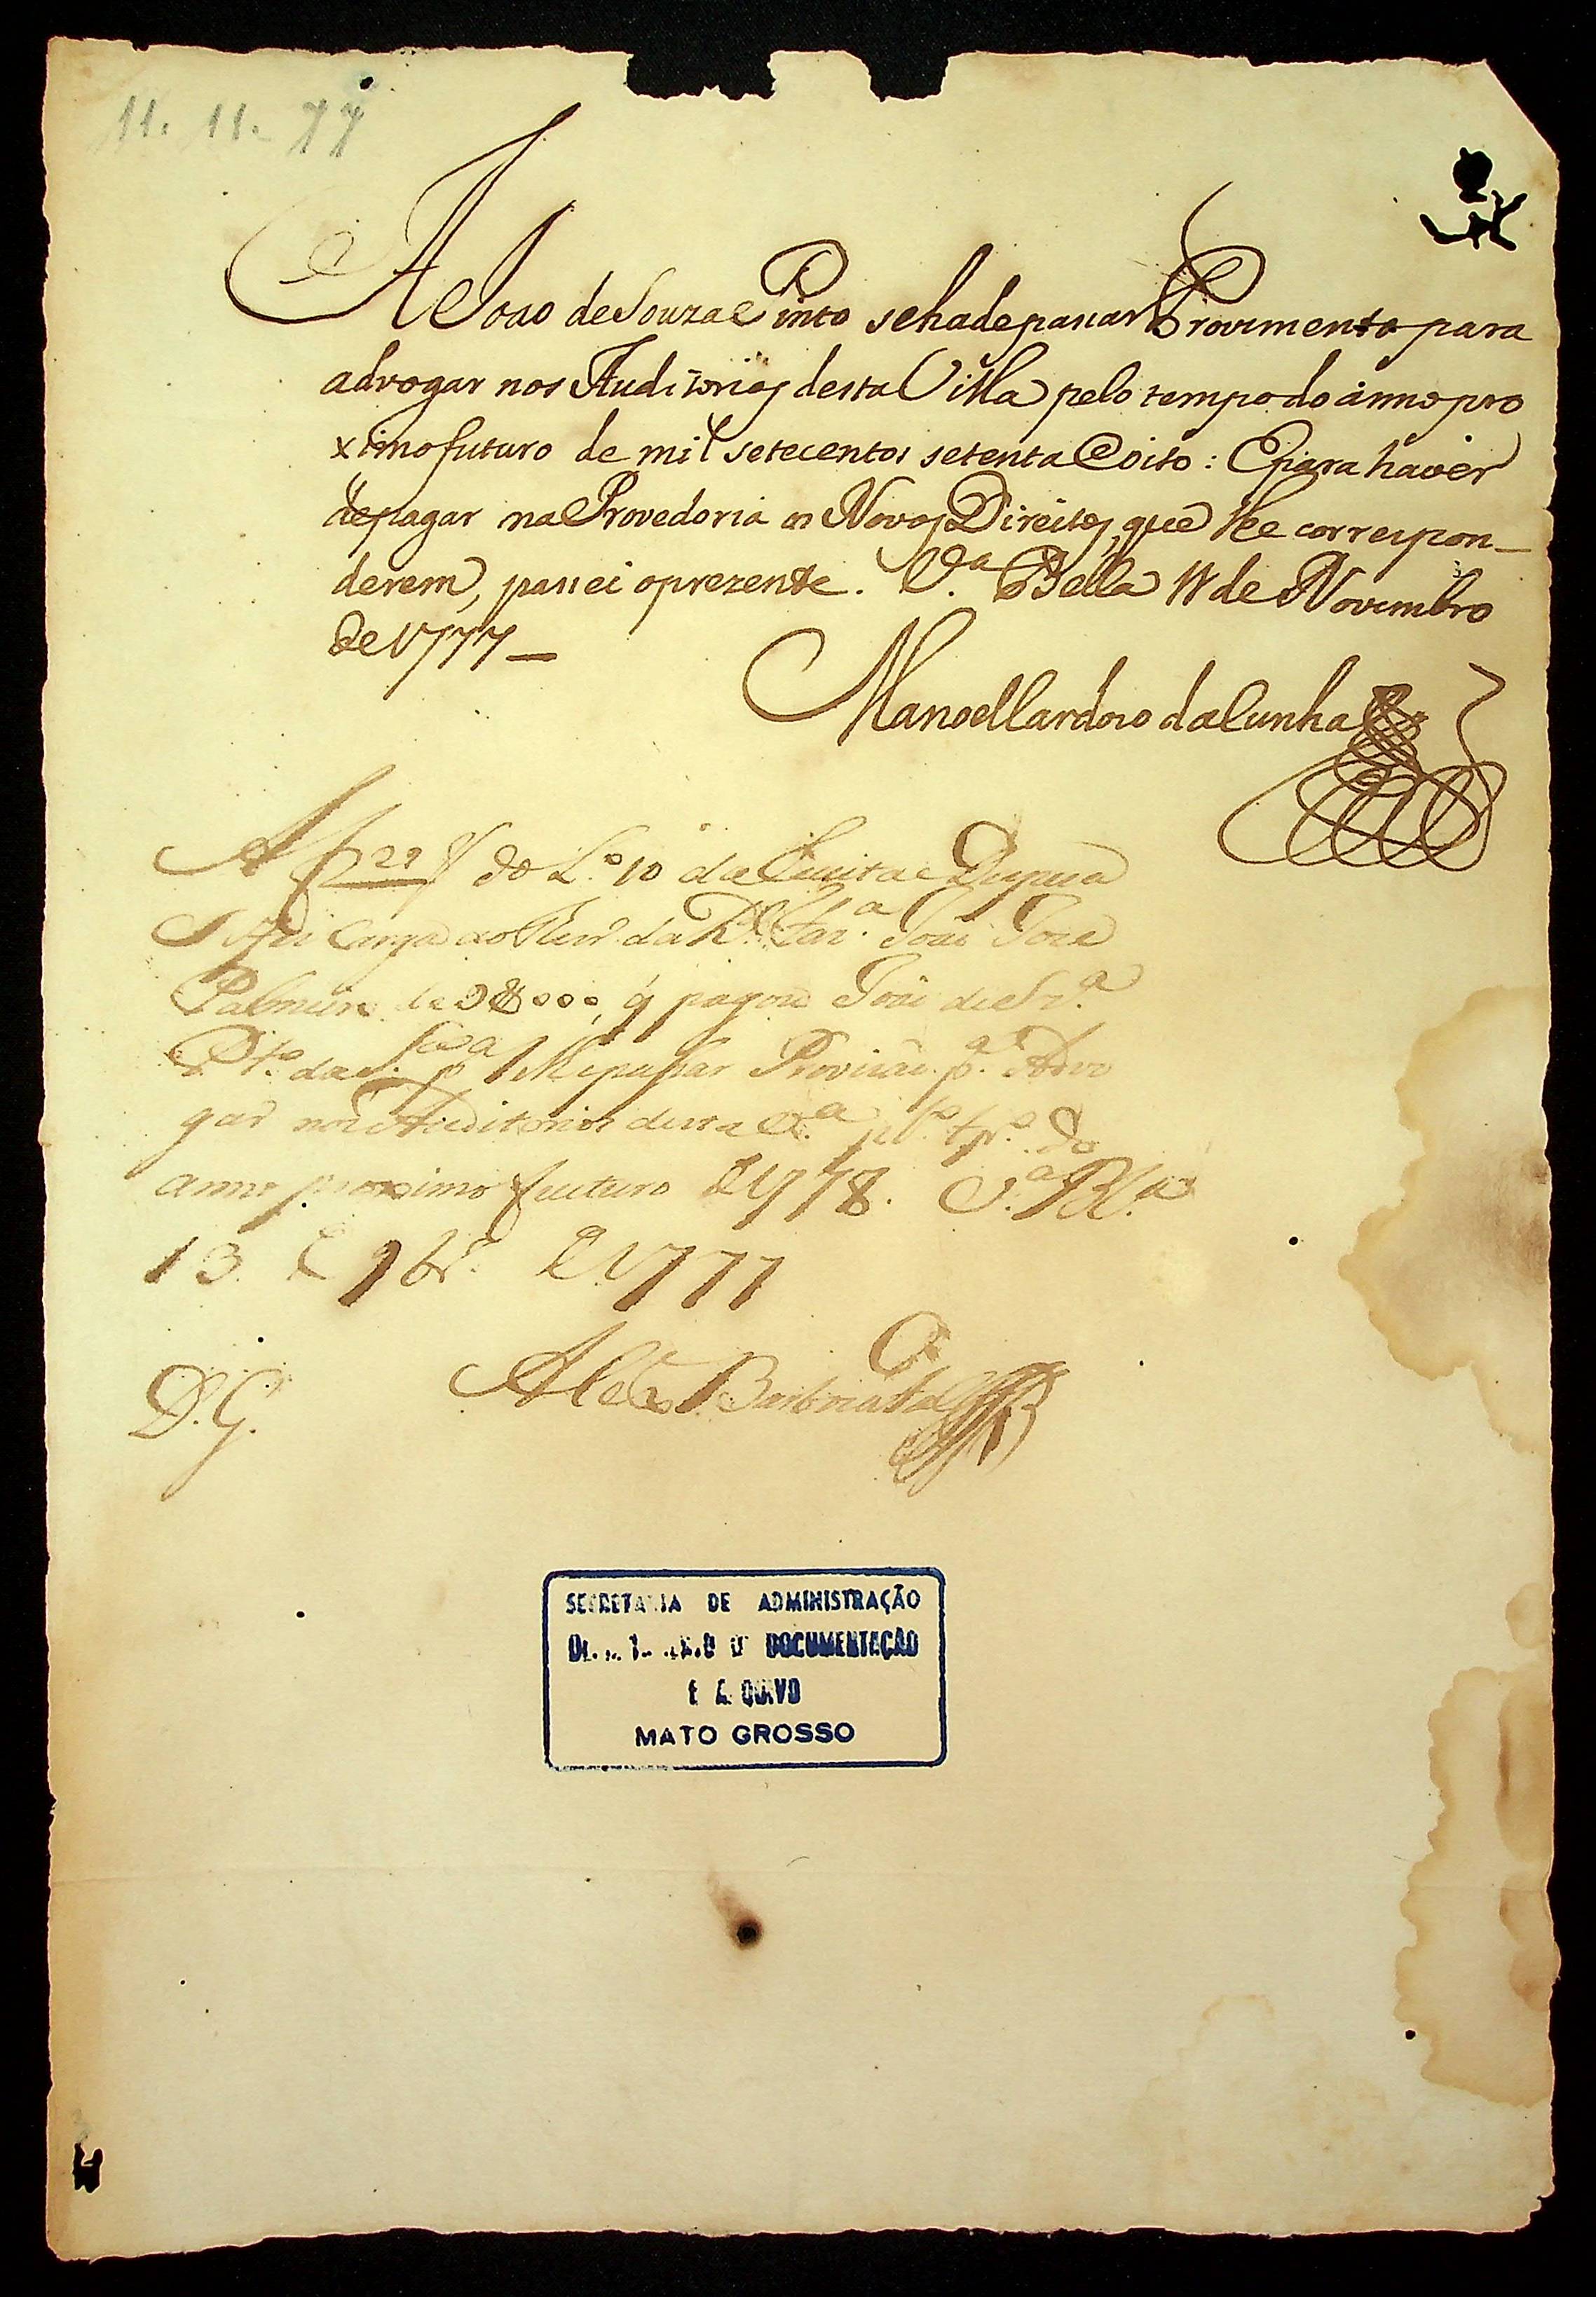 11. 11. 77
A Joao de Souza Pinto se ha de passar Provimento para
advogar nos Auditorios desta Villa pelo tempo do anno pro
ximo futuro de mil setecentos setenta e oito: E para haver
de pagar na Provedoria os Novos Direitos, que lhe correspon-
derem, passei o prezente. V.ª Bella 11 de Novembro
de 1777 —
Manoel Cardozo da Cunha
A f 29 do L.º 10 da Receita e Despeza
carga ao da R.l Faz.ª João Jose
de 9$000, q pagou João de Sz.ª
P.to da S.ª p.ª se lhe passar Provisão p.ª Advo
gar nos Auditorios desta V.ª p.lo tp.º do
anno proximo futuro de 1778. V.ª B.ª
13 de 9br.º de 1777
D.G.
SECRETARIA DE ADMINISTRAÇÃO
DOCUMENTAÇÃO
E ARQUIVO
MATO GROSSO